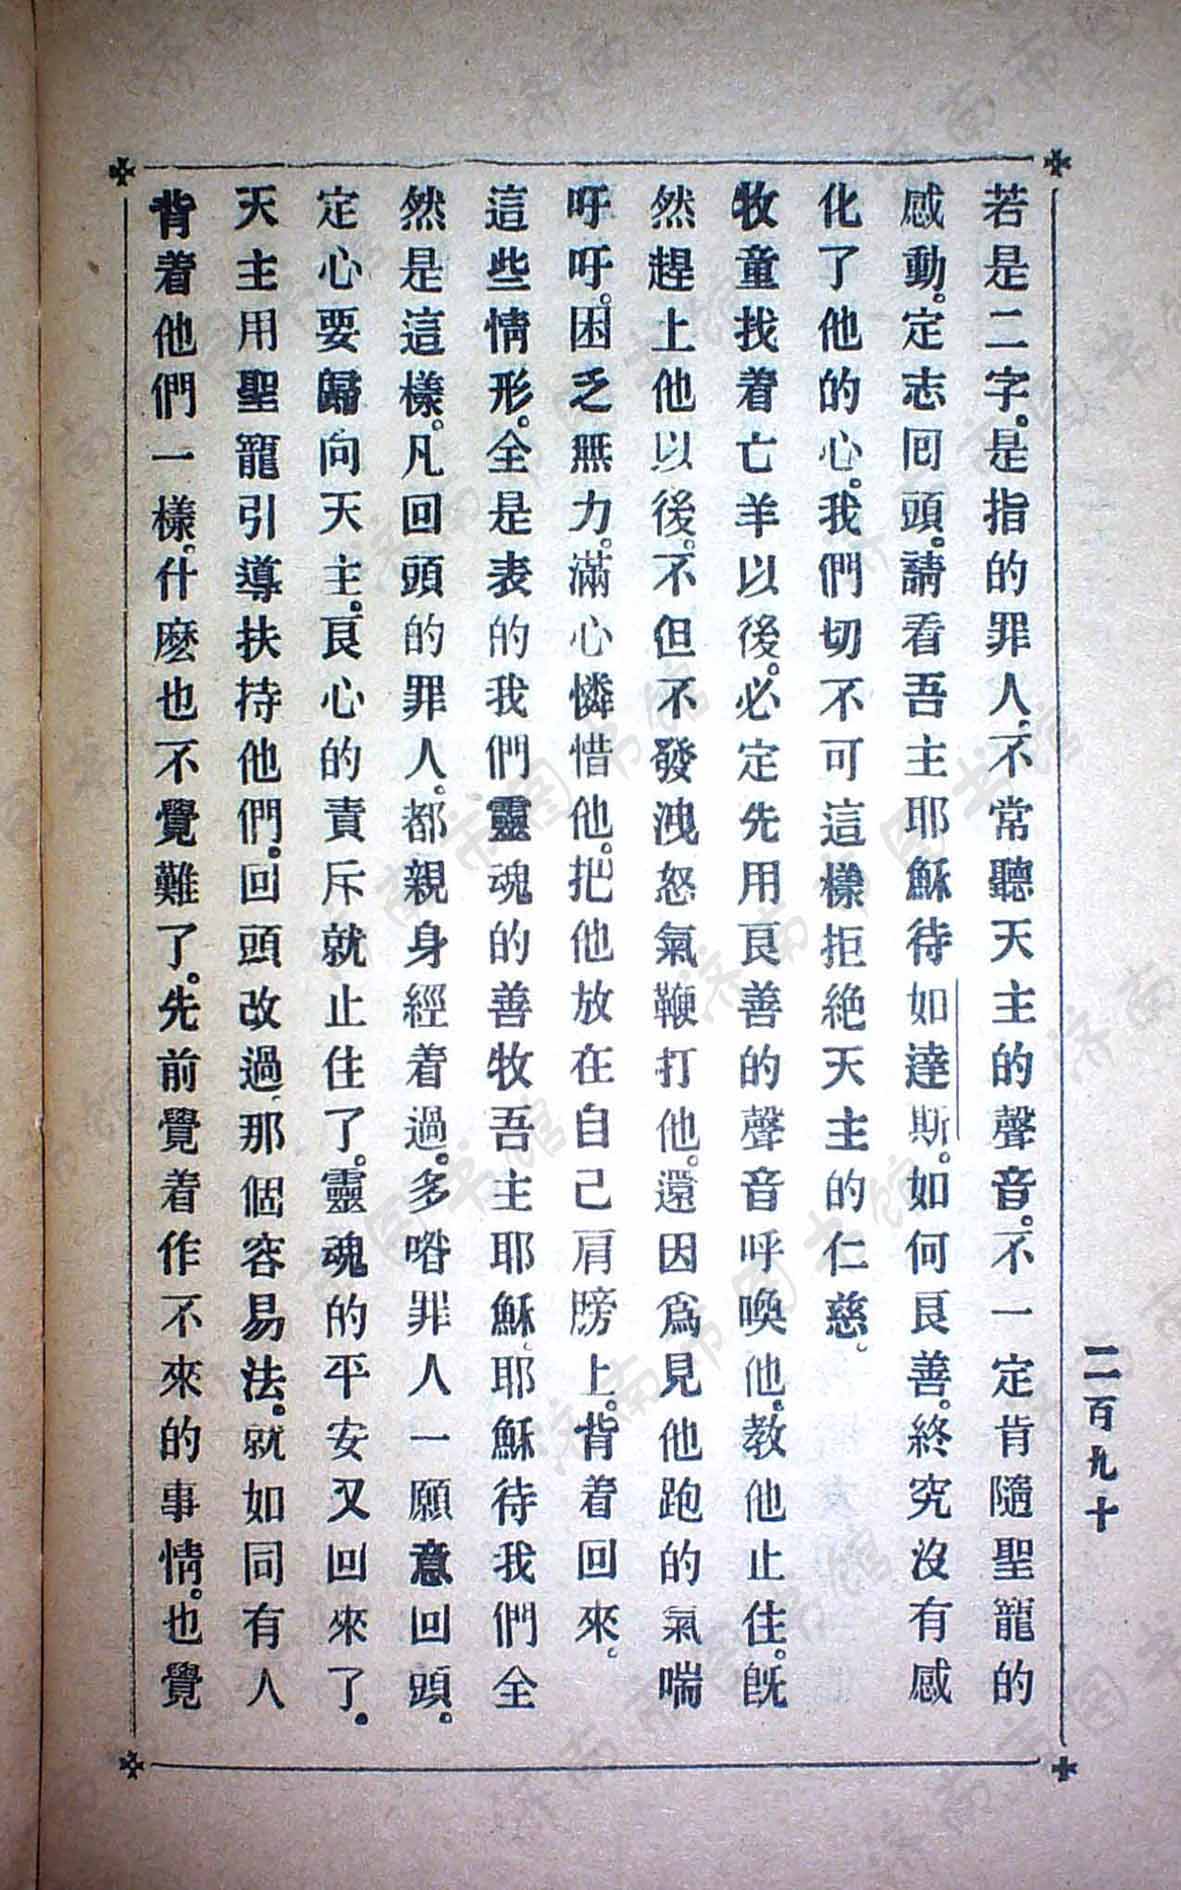 若是二字。是指的罪人、不常聽天主的聲音。不一定肯隨聖寵的
感動。定志囘頭。請看吾主耶穌待如達斯。如何良善。終究沒有感
化了他的心。我們切不可這樣拒絕天主的仁慈。
牧童找着亡羊以後。必定先用良善的聲音呼喚他。教他止住。旣
然趕上他以後。不但不發洩怒氣鞭打他。還因爲見他跑的氣喘
吁吁。困乏無力。滿心憐惜他。把他放在自己肩膀上。背着回來。
這些情形。全是表的我們靈魂的善牧吾主耶穌。耶穌待我們全
然是這樣。凡回頭的罪人。都親身經着過。多喒罪人一願意回頭。
定心要歸向天主。良心的責斥就止住了。靈魂的平安又回來了。
天主用聖寵引導扶持他們。回頭改過、那個容易法。就如同有人
背着他們一樣。什麽也不覺難了。先前覺着作不來的事情。也覺
二百九十
济南市图书馆